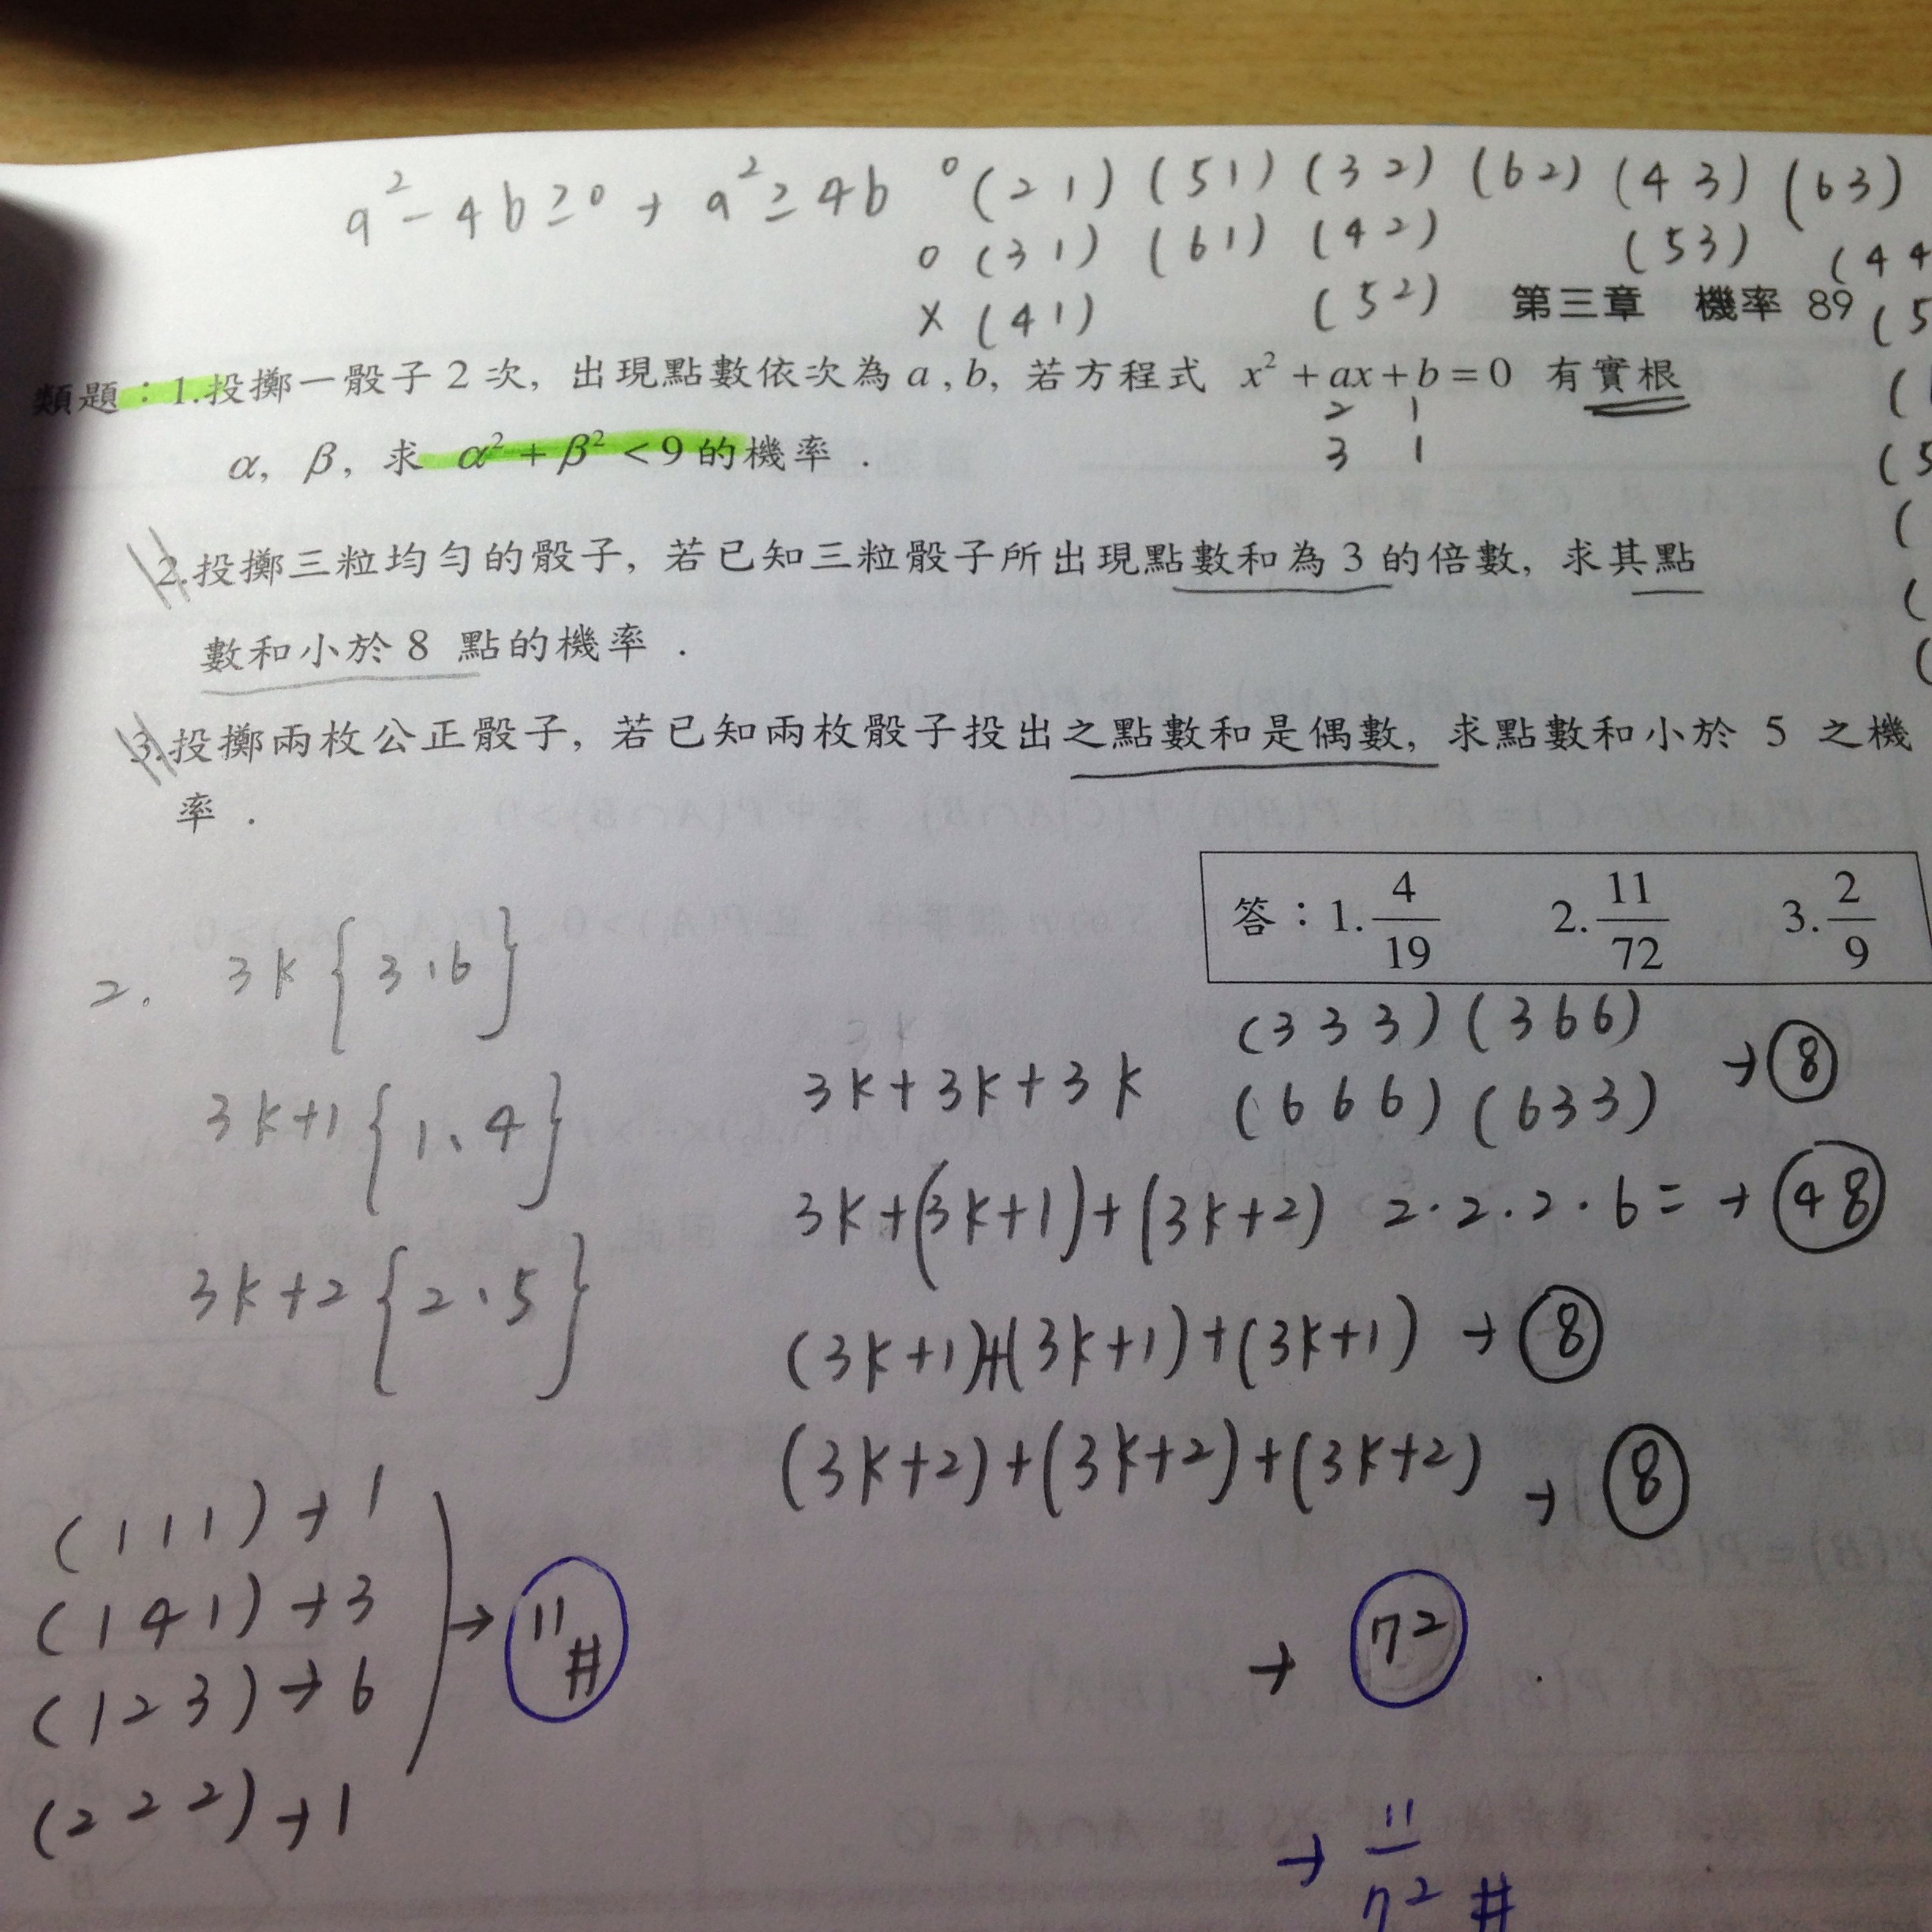 a²-4b≥0 → a²≥4b ○(2 1) (5 1) (3 2) (6 2) (4 3) (6 3)
○(3 1) (6 1) (4 2) (5 3) (4 4
×(4 1) (5 2)
第三章 機率 89 (5
類題：1.投擲一骰子 2 次, 出現點數依次為 a , b, 若方程式 x² + ax + b = 0 有實根
2 1
α, β, 求 α² + β² < 9 的機率 .
3 1
(5
2.投擲三粒均勻的骰子, 若已知三粒骰子所出現點數和為 3 的倍數, 求其點
數和小於 8 點的機率 .
3.投擲兩枚公正骰子, 若已知兩枚骰子投出之點數和是偶數, 求點數和小於 5 之機
率 .
答：1. 4/19 2. 11/72 3. 2/9
2. 3k{3、6}
3k+1{1、4}
3k+2{2、5}
3k+3k+3k (3 3 3) (3 6 6) (6 6 6) (6 3 3) → 8
3k+(3k+1)+(3k+2) 2·2·2·6= → 48
(3k+1)+(3k+1)+(3k+1) → 8
(3k+2)+(3k+2)+(3k+2) → 8
(1 1 1) → 1
(1 4 1) → 3
(1 2 3) → 6
(2 2 2) → 1
→ 11 #
→ 72
→ 11/72 #